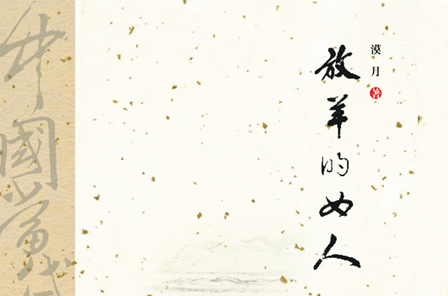 漠月
著
放羊的女人
中國當代